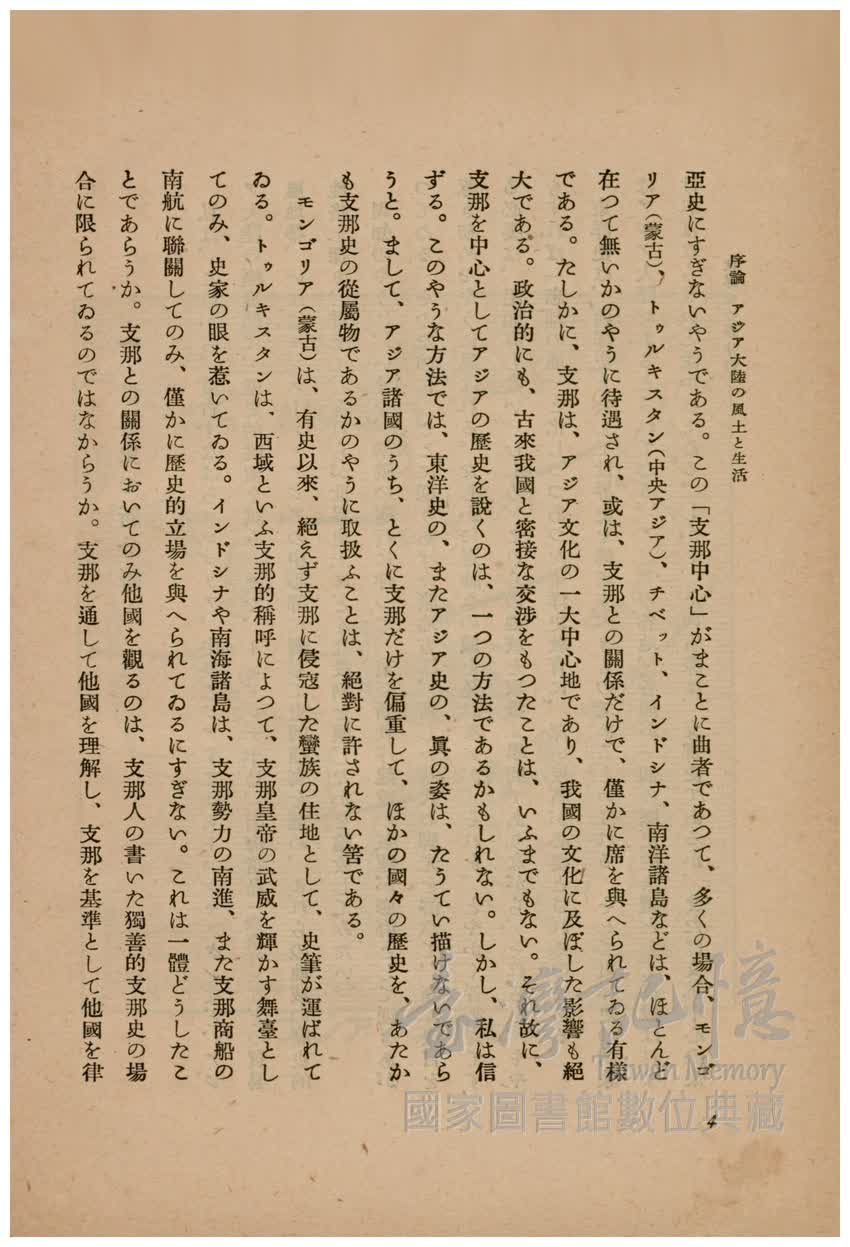 序論 アジア大陸の風土と生活
亞史にすぎないやうである。この「支那中心」がまことに曲者であつて、多くの場合、モンゴ
リア(蒙古)、トゥルキスタン(中央アジア)、チベット、インドシナ、南洋諸島などは、ほとんど
在つて無いかのやうに待遇され、或は、支那との關係だけで、僅かに席を與へられてゐる有樣
である。たしかに、支那は、アジア文化の一大中心地であり、我國の文化に及ぼした影響も絕
大である。政治的にも、古來我國と密接な交涉をもつたことは、いふまでもない。それ故に、
支那を中心としてアジアの歷史を說くのは、一つの方法であるかもしれない。しかし、私は信
ずる。このやうな方法では、東洋史の、またアジア史の、眞の姿は、たうてい描けないであら
うと。まして、アジア諸國のうち、とくに支那だけを偏重して、ほかの國々の歷史を、あたか
も支那史の從屬物であるかのやうに取扱ふことは、絕對に許されない筈である。
モンゴリア(蒙古)は、有史以來、絕えず支那に侵寇した蠻族の住地として、史筆が運ばれて
ゐる。トゥルキスタンは、西域といふ支那的稱呼によつて、支那皇帝の武威を輝かす舞臺とし
てのみ、史家の眼を惹いてゐる。インドシナや南海諸島は、支那勢力の南進、また支那商船の
南航に聯關してのみ、僅かに歷史的立場を與へられてゐるにすぎない。これは一體どうしたこ
とであらうか。支那との關係においてのみ他國を觀るのは、支那人の書いた獨善的支那史の場
合に限られてゐるのではなからうか。支那を通して他國を理解し、支那を基準として他國を律
4
臺灣記憶
Taiwan Memory
國家圖書館數位典藏